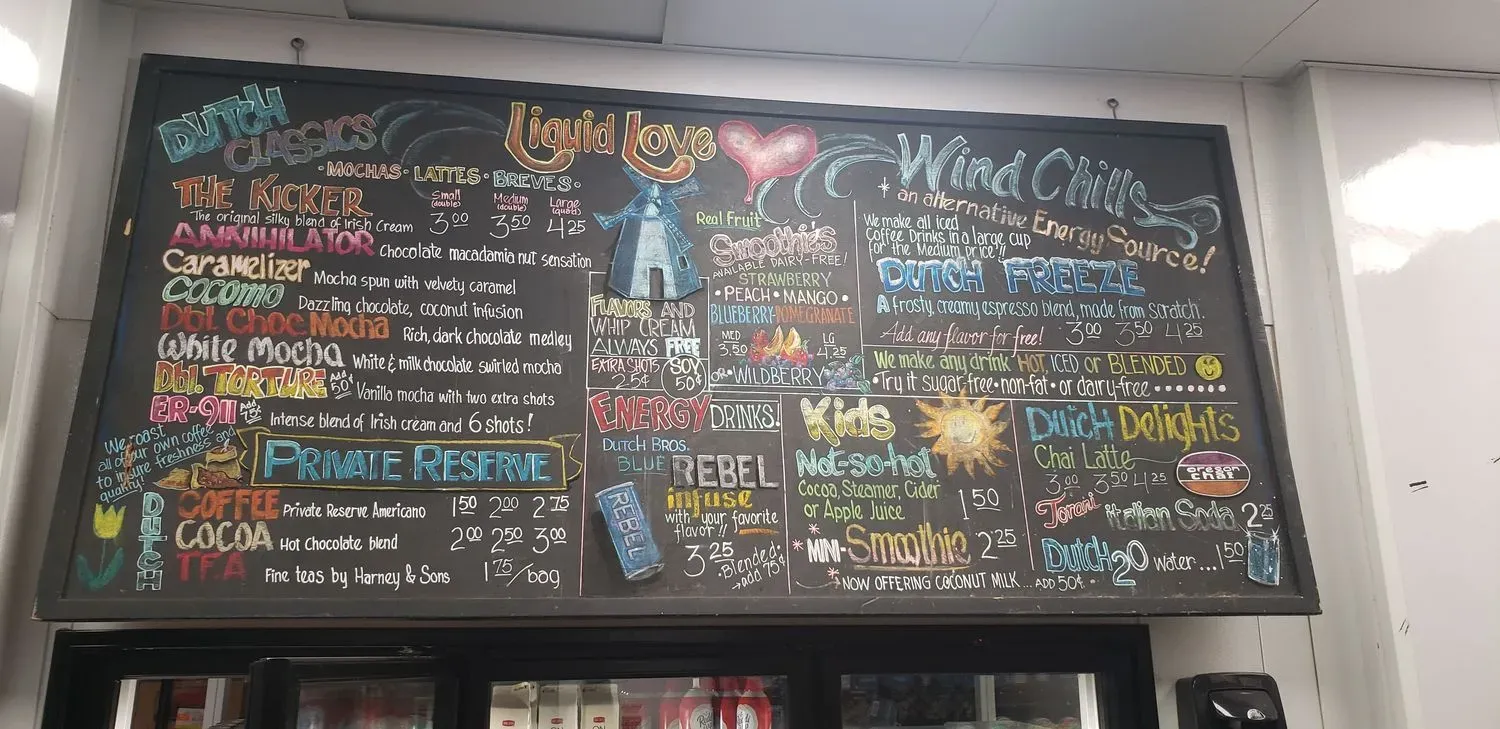 DUTCH
CLASSICS
Liquid Love
•MOCHAS•LATTES•BREVES•
THE KICKER
Small (double) Medium (double) Large (quad)
3.00 3.50 4.25
The original silky blend of Irish Cream
ANNIHILATOR Chocolate macadamia nut sensation
Caramelizer Mocha spun with velvety caramel
Cocomo Dazzling chocolate, coconut infusion
Dbl. Choc Mocha Rich, dark chocolate medley
White Mocha White & milk chocolate swirled mocha
Dbl. TORTURE Add 50¢ Vanilla mocha with two extra shots
ER-911 Add 75¢ Intense blend of Irish cream and 6 shots!
We roast
all of our own coffee
to insure freshness and
quality!
PRIVATE RESERVE
DUTCH
COFFEE Private Reserve Americano 1.50 2.00 2.75
COCOA Hot Chocolate blend 2.00 2.50 3.00
TEA Fine teas by Harney & Sons 1.75/bag
FLAVORS AND
WHIP CREAM
ALWAYS FREE
EXTRA SHOTS
25¢
SOY
50¢
Real Fruit
Smoothies
AVAILABLE DAIRY-FREE!
STRAWBERRY
•PEACH•MANGO•
BLUEBERRY-POMEGRANATE
MED
3.50
LG
4.25
OR•WILDBERRY
ENERGY DRINKS!
DUTCH BROS.
BLUE REBEL
infuse
with your favorite
flavor!!
REBEL
3.25
•Blended:
→add 75¢
Wind Chills
*an alternative Energy Source!
We make all iced
Coffee Drinks in a large cup
for the Medium price!!
DUTCH FREEZE
A frosty, creamy espresso blend, made from scratch.
Add any flavor for free! 3.00 3.50 4.25
We make any drink HOT, ICED or BLENDED
•Try it sugar-free•non-fat•or dairy-free
Kids
Not-so-hot
Cocoa, Steamer, Cider
or Apple Juice
1.50
*MINI-Smoothie 2.25
*NOW OFFERING COCONUT MILK...ADD 50¢•
Dutch Delights
Chai Latte
3.00 3.50 4.25
oregon
chai
Torani Italian Soda 2.25
Dutch2O water...1.50